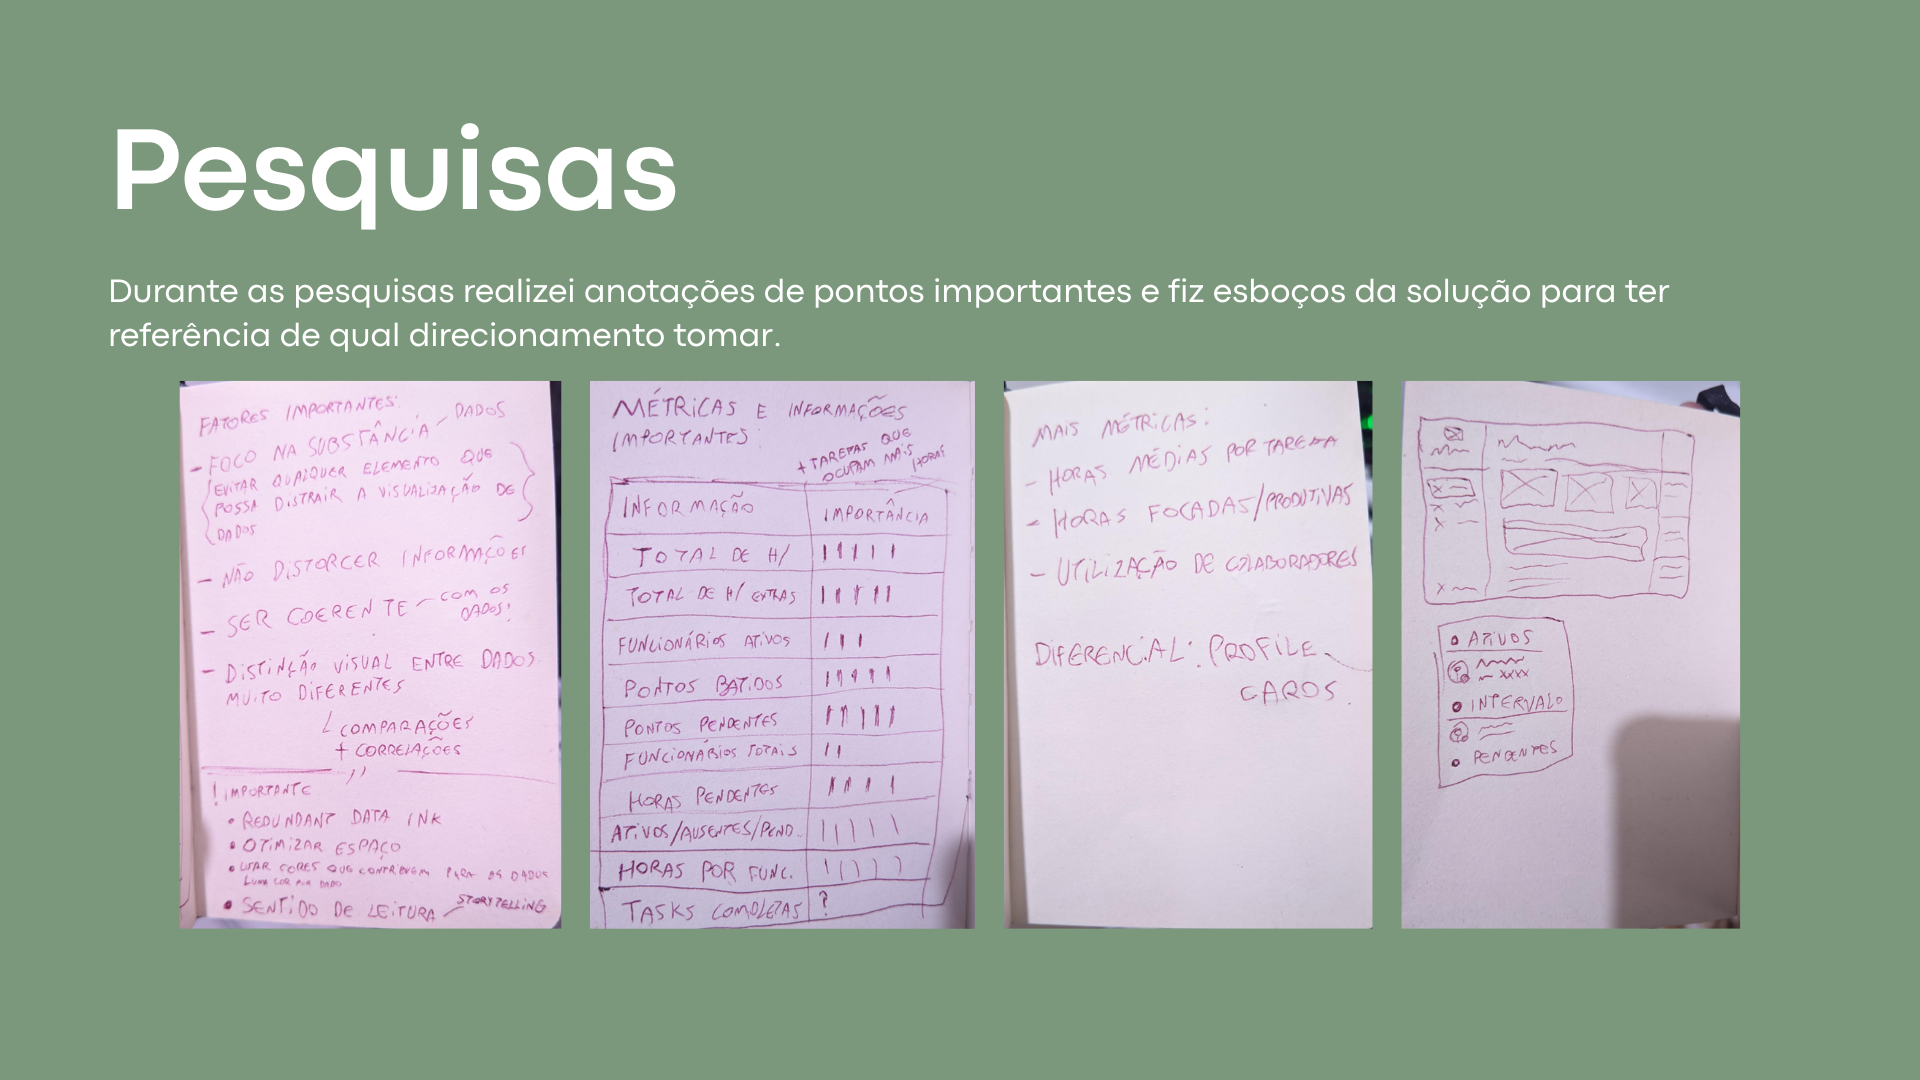 Pesquisas
Durante as pesquisas realizei anotações de pontos importantes e fiz esboços da solução para ter
referência de qual direcionamento tomar.
FATORES IMPORTANTES:
- FOCO NA SUBSTÂNCIA - DADOS
EVITAR QUALQUER ELEMENTO QUE
POSSA DISTRAIR A VISUALIZAÇÃO DE
DADOS
- NÃO DISTORCER INFORMAÇÕES
- SER COERENTE - COM OS
DADOS!
- DISTINÇÃO VISUAL ENTRE DADOS
MUITO DIFERENTES
COMPARAÇÕES
+ CORRELAÇÕES
! IMPORTANTE
• REDUNDANT DATA INK
• OTIMIZAR ESPAÇO
• USAR CORES QUE CONTRIBUEM PARA OS DADOS
UMA COR POR DADO
• SENTIDO DE LEITURA - STORYTELLING
MÉTRICAS E INFORMAÇÕES
IMPORTANTES:
+ TAREFAS QUE
OCUPAM MAIS HORAS
INFORMAÇÃO IMPORTÂNCIA
TOTAL DE H/ IIIII
TOTAL DE H/ EXTRAS IIIII
FUNCIONÁRIOS ATIVOS III
PONTOS BATIDOS IIIII
PONTOS PENDENTES IIIII
FUNCIONÁRIOS TOTAIS II
HORAS PENDENTES IIII
ATIVOS/AUSENTES/PEND. IIIII
HORAS POR FUNC. IIIII
TASKS COMPLETAS ?
MAIS MÉTRICAS:
- HORAS MÉDIAS POR TAREFA
- HORAS FOCADAS/PRODUTIVAS
- UTILIZAÇÃO DE COLABORADORES
DIFERENCIAL: PROFILE
CARDS.
• ATIVOS
XXXX
• INTERVALO
• PENDENTES